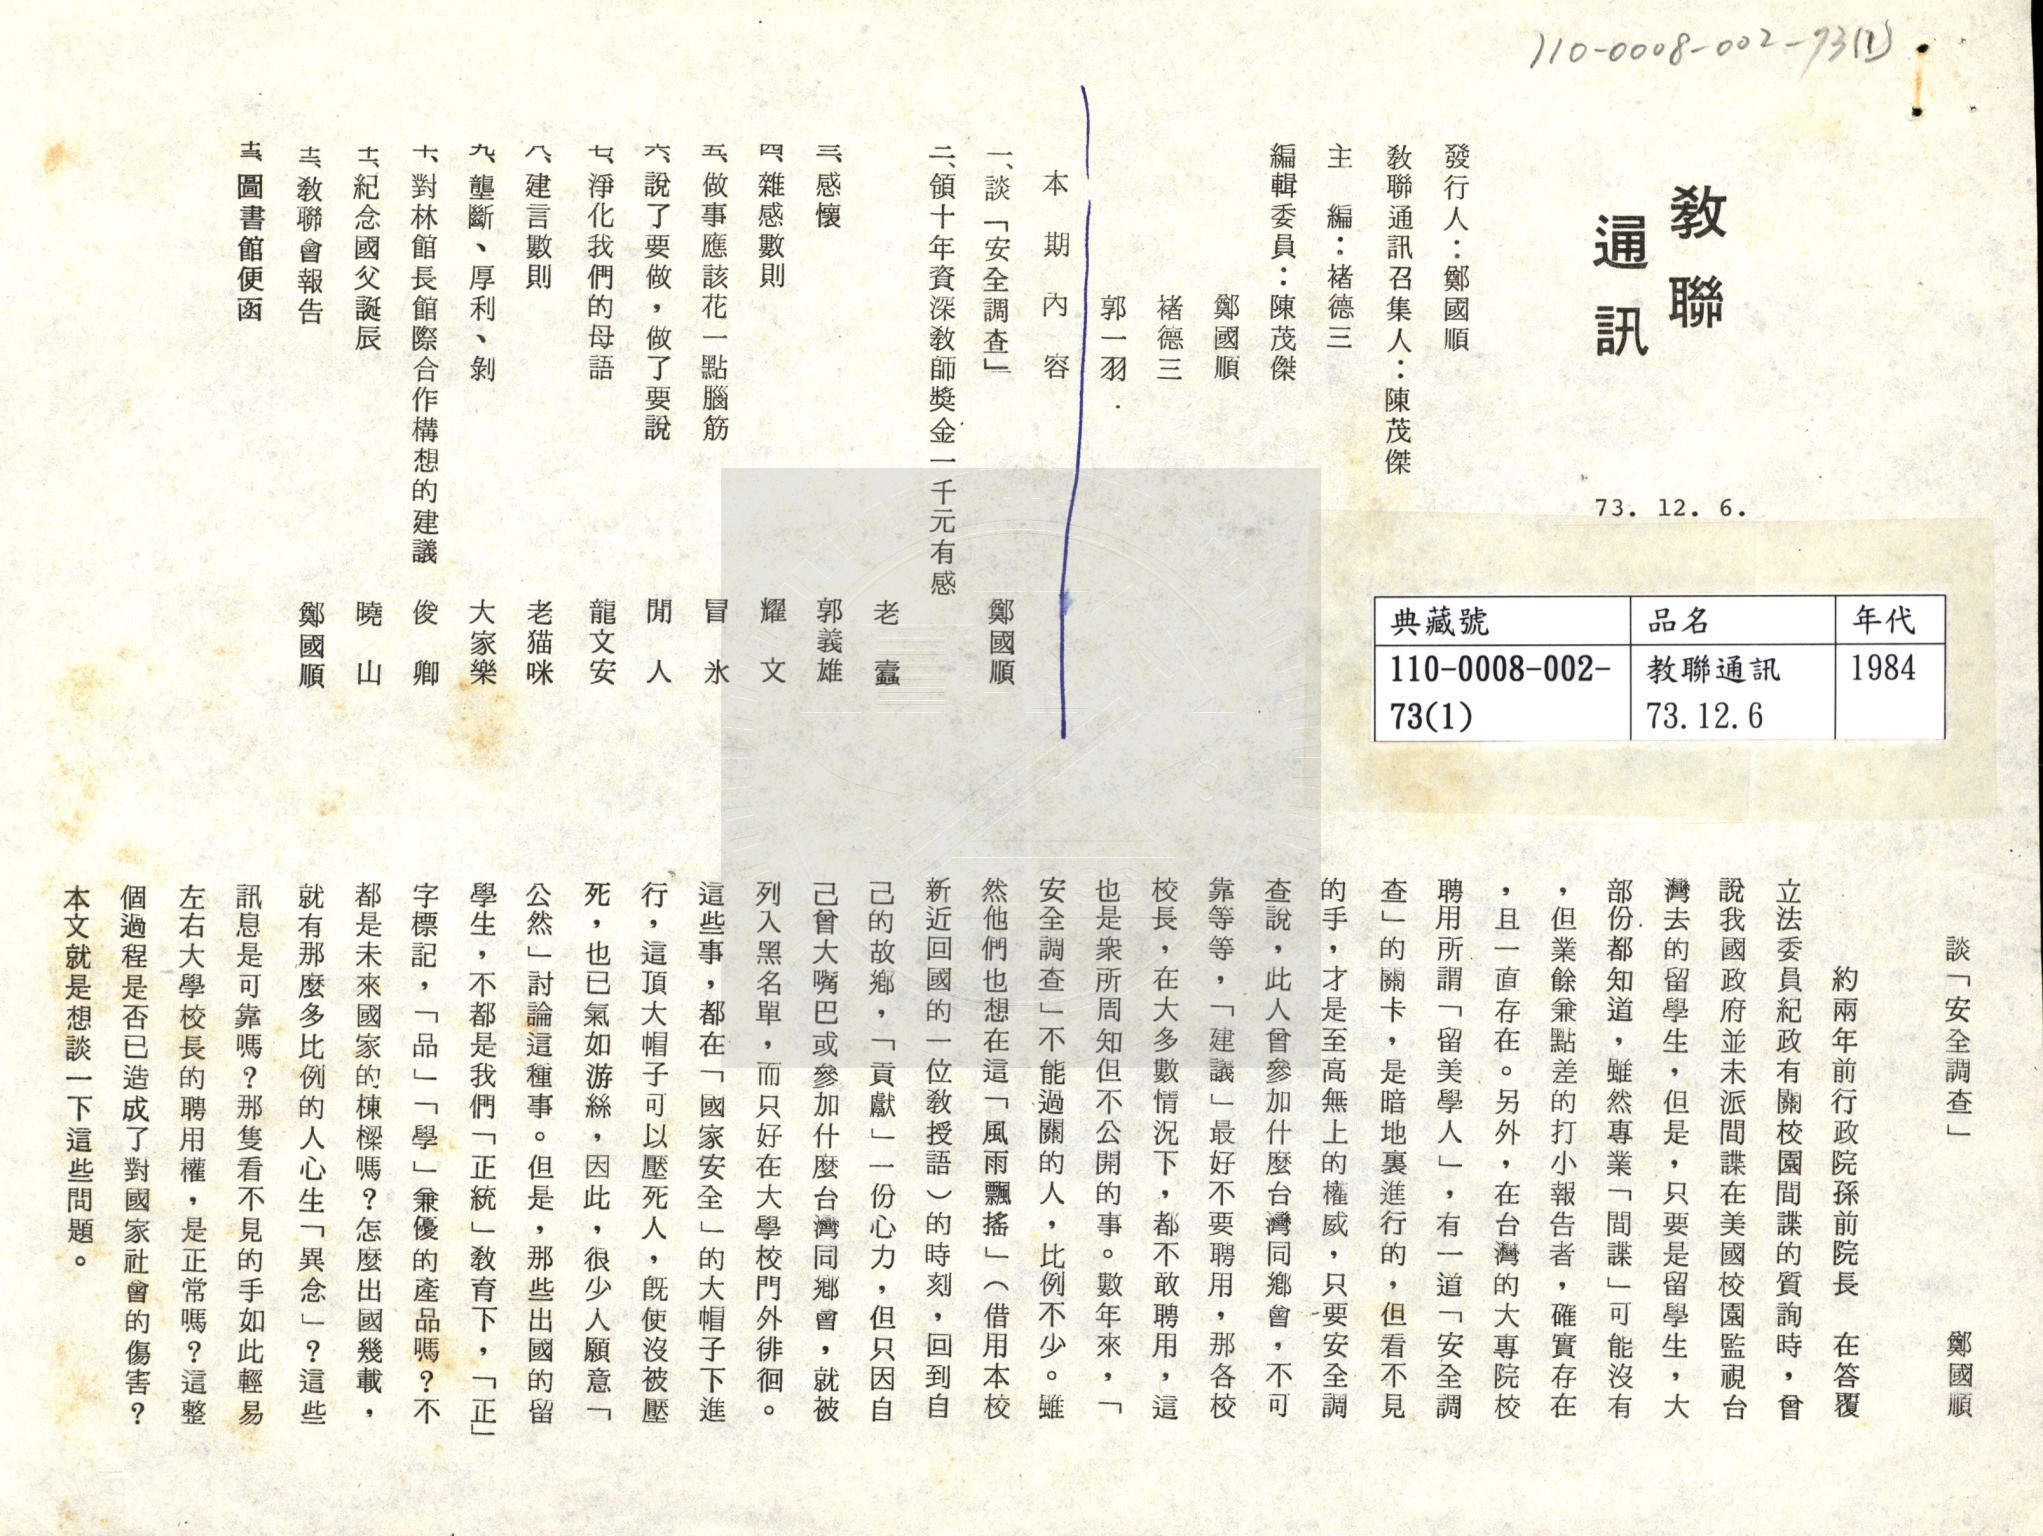 110-0008-002-73(1)
教聯
通訊
73. 12. 6.
典藏號 品名 年代
110-0008-002-73(1) 教聯通訊 73.12.6 1984
發行人：鄭國順
教聯通訊召集人：陳茂傑
主　編：褚德三
編輯委員：陳茂傑
鄭國順
褚德三
郭一羽
本期內容
一、談「安全調查」　鄭國順
二、領十年資深教師獎金一千元有感
老　蠹
三、感懷　郭義雄
四、雜感數則　耀　文
五、做事應該花一點腦筋　冒　氷
六、說了要做，做了要說　閒　人
七、淨化我們的母語　龍文安
八、建言數則　老猫咪
九、壟斷、厚利、剝　大家樂
十、對林館長館際合作構想的建議　俊　卿
十一、紀念國父誕辰　曉　山
十二、教聯會報告　鄭國順
十三、圖書館便函
談「安全調查」　鄭國順
約兩年前行政院孫前院長　在答覆
立法委員紀政有關校園間諜的質詢時，曾
說我國政府並未派間諜在美國校園監視台
灣去的留學生，但是，只要是留學生，大
部份都知道，雖然專業「間諜」可能沒有
，但業餘兼點差的打小報告者，確實存在
，且一直存在。另外，在台灣的大專院校
聘用所謂「留美學人」，有一道「安全調
查」的關卡，是暗地裏進行的，但看不見
的手，才是至高無上的權威，只要安全調
查說，此人曾參加什麼台灣同鄉會，不可
靠等等，「建議」最好不要聘用，那各校
校長，在大多數情況下，都不敢聘用，這
也是衆所周知但不公開的事。數年來，「
安全調查」不能過關的人，比例不少。雖
然他們也想在這「風雨飄搖」（借用本校
新近回國的一位教授語）的時刻，回到自
己的故鄉，「貢獻」一份心力，但只因自
己曾大嘴巴或參加什麼台灣同鄉會，就被
列入黑名單，而只好在大學校門外徘徊。
這些事，都在「國家安全」的大帽子下進
行，這頂大帽子可以壓死人，旣使沒被壓
死，也已氣如游絲，因此，很少人願意「
公然」討論這種事。但是，那些出國的留
學生，不都是我們「正統」教育下，「正」
字標記，「品」「學」兼優的產品嗎？不
都是未來國家的棟樑嗎？怎麼出國幾載，
就有那麼多比例的人心生「異念」？這些
訊息是可靠嗎？那隻看不見的手如此輕易
左右大學校長的聘用權，是正常嗎？這整
個過程是否已造成了對國家社會的傷害？
本文就是想談一下這些問題。